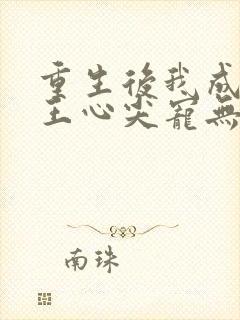 重生後我成
王心尖寵無
南珠